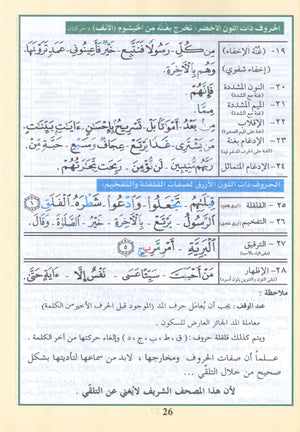 الحروف ذات اللون الأخضر: تخرج بغنة من الخيشوم (الأنف) ، حركتان
١٩- (غنة الإخفاء) مِن كُلٍّ. رَسُولًا فَنَتَّبِعَ. خَيْرٌ فَأَعِينُونِي.
(إخفاء شفوي) وَهُم بِالْآخِرَةِ.
٢٠- النون المشددة فَإِنَّهُمْ
٢١- الميم المشددة مِمَّا
٢٢- الإقلاب مِنۢ بَعْدِ. أَمْوَٰتًۢا بَلْ. تَسْرِيحٌۢ بِإِحْسَٰنٍ. ءَايَٰتٍۢ بَيِّنَٰتٍ.
٢٣- الإدغام بغنة مَن يَشْتَرِى.
٢٤- الإدغام المتماثل رَبُّهُم. لَن نُّؤْمِنَ. رَبِحَت تِّجَٰرَتُهُمْ.
الحروف ذات اللون الأزرق لصفات القلقلة والتفخيم:
٢٥- القلقلة قَبْلِهِمْ. تَجْعَلُوا. وَادْعُوا. شَطْرَهُ. الْفَلَقِ
٢٦- التفخيم الرَّسُولُ. بِالْآخِرَةِ. خَيْرٌ. الصَّلَوٰةَ. وَقَالَ.
٢٧- الترقيق الْبَرِيَّةِ. أَمْرٍ مَّرِيجٍ
٢٨- الإظهار مَنْ أَحْبَبْتَ. نَفْسٌ إِلَّا. ءَايَةٍ حَتَّىٰ
ملاحظة -
عند الوقف: يجب أن يُعامل حرف المد (الموجود قبل الحرف الأخير من الكلمة)
معاملة المد الجائز العارض للسكون.
ويتم كذلك قلقلة حروف: (ق ، ط ، ب ، ج ، د) وإلغاء حركتها من آخر الكلمة.
علماً أن صفات الحروف ومخارجها ، لابد من سماعها لتأديتها بشكل
صحيح من خلال التلقي ...
لأن هذا المصحف الشريف لايُغني عن التلقي.
26